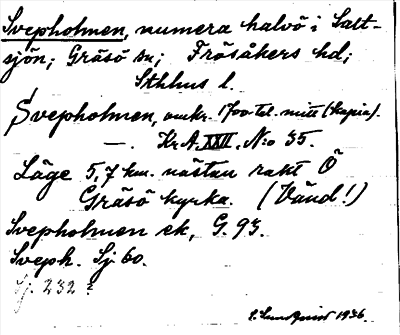 Svepholmen, numera halvö i Salt-
sjön; Gräsö sn; Frösåkers hd;
Sthlms l.
Svepholmen, omkr. 1700-tal. mitt (kopia).
—. Kr.A. XXII. N:o 35.
Läge 5,7 km. nästan rakt Ö
Gräsö kyrka. (Vänd!)
Svepholmen ek, G. 93.
Sveph. Sj 60.
Sj. 232 :
1936.